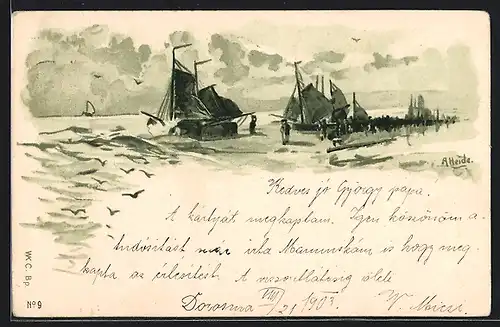 A. Heide.
Kedves jó György papa.
A kártyát megkaptam. Igen köszönöm a
tudósítást már írta Mamuskám is hogy meg
kapta az értesítést. A viszontlátásig ölele
Dorozsma VIII/21 1903. W. Miczi
W.K.C. Bp.
No 9